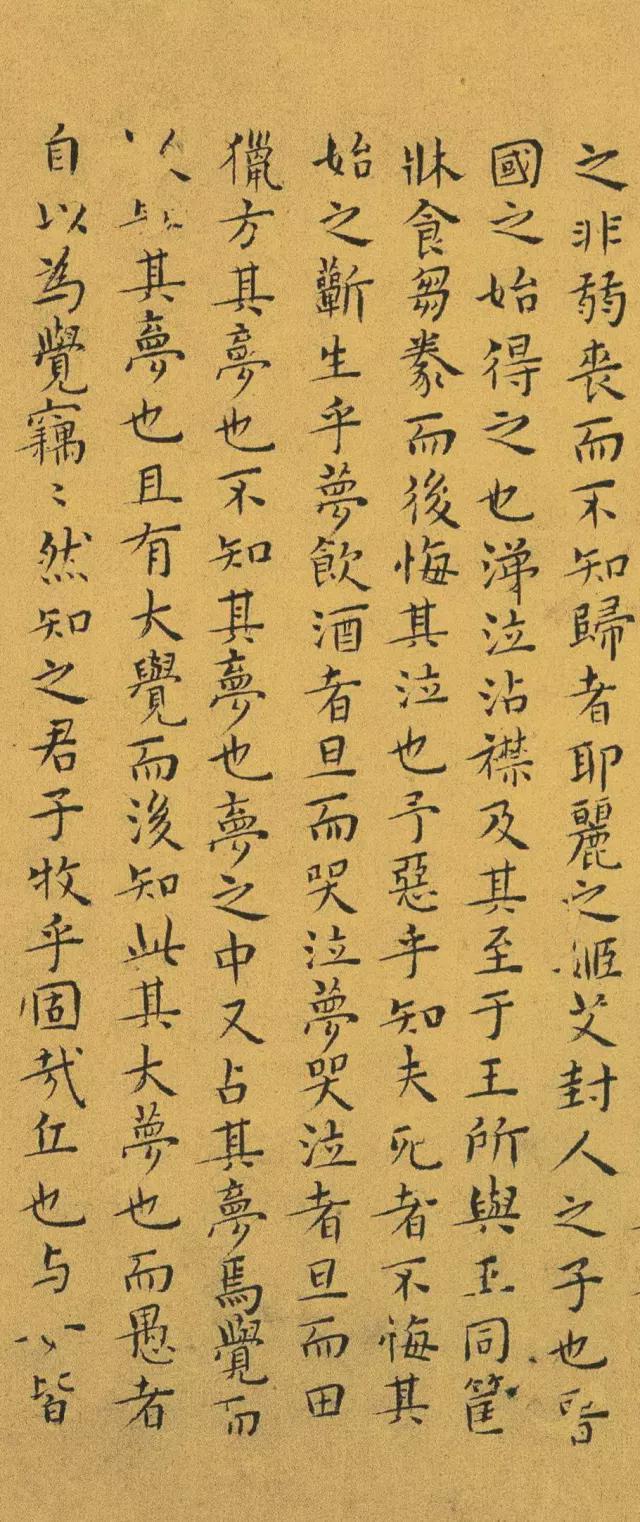 之非弱喪而不知歸者耶麗之姬艾封人之子也晉
國之始得之也涕泣沾襟及其至于王所與王同筐
牀食芻豢而後悔其泣也予惡乎知夫死者不悔其
始之蘄生乎夢飲酒者旦而哭泣夢哭泣者旦而田
獵方其夢也不知其夢也夢之中又占其夢焉覺而
其夢也且有大覺而後知此其大夢也而愚者
自以為覺竊〻然知之君子牧乎固哉丘也与女皆